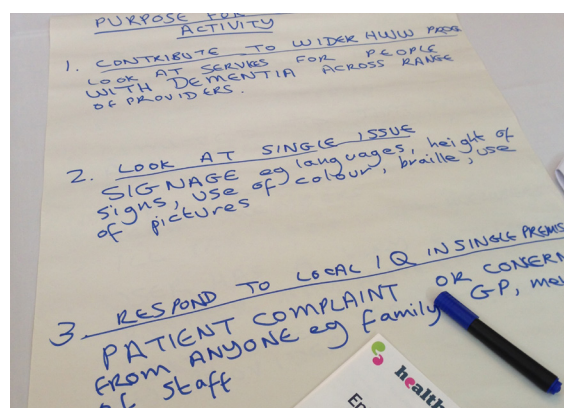 PURPOSE FOR
ACTIVITY
1. CONTRIBUTE TO WIDER HWW PROG
LOOK AT SERVICES FOR PEOPLE
WITH DEMENTIA ACROSS RANGE
OF PROVIDERS.
2. LOOK AT SINGLE ISSUE
SIGNAGE eg languages, height of
signs, use of colour, braille, use
of pictures
3. RESPOND TO LOCAL IQ IN SINGLE PREMIS
PATIENT COMPLAINT OR CONCERN
FROM ANYONE eg family GP,
of staff
health